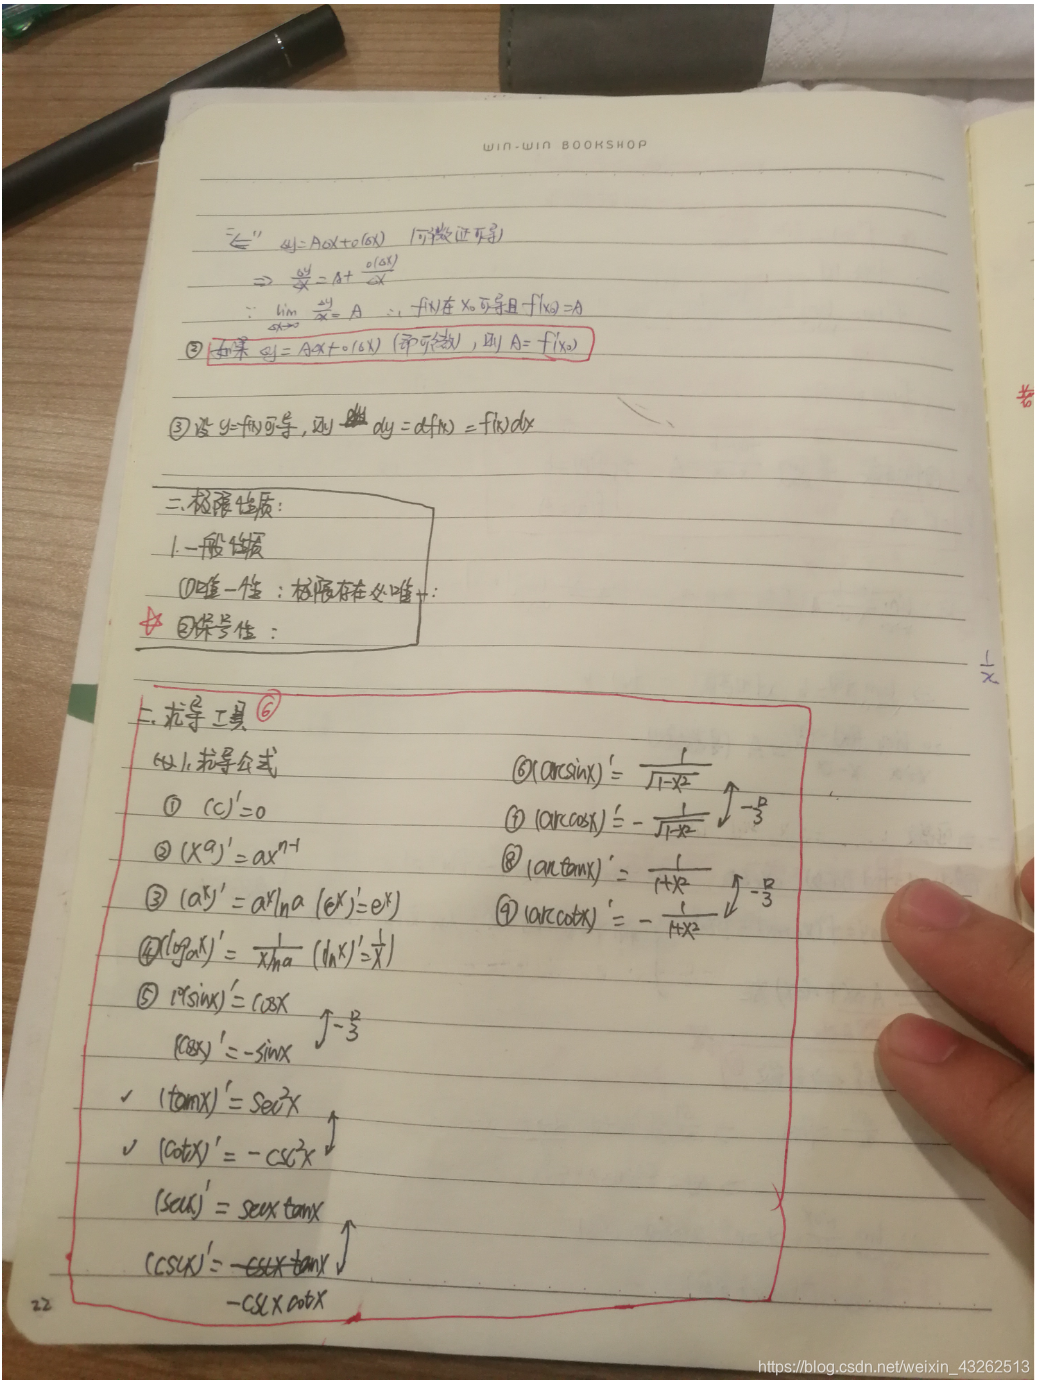 WIN-WIN BOOKSHOP
"⇐" Δy=AΔx+o(Δx) 可微证可导
⇒ Δy/Δx = A + o(Δx)/Δx
∵ lim Δx→0 Δy/Δx = A ∴ f(x)在x₀可导且f'(x₀)=A
② 如果 Δy=AΔx+o(Δx) (即可微),则 A=f'(x₀)
③ 设 y=f(x)可导,则 dy=df(x)=f'(x)dx
二.极限性质:
1.一般性质
①唯一性:极限存在必唯一:
☆ ②保号性:
二.求导工具 ⑥
(一)1.求导公式
① (c)'=0
② (xᵃ)'=axⁿ⁻¹
③ (aˣ)'=aˣlna (eˣ)'=eˣ)
④(logₐx)'= 1/xlna (lnx)'=1/x)
⑤ (sinx)'=cosx
(cosx)'=-sinx
✓ (tanx)'=sec²x
✓ (cotx)'=-csc²x
(secx)'=secxtanx
(cscx)'=-cscxtanx
-cscxcotx
⑥(arcsinx)'= 1/√(1-x²)
⑦(arccosx)'= - 1/√(1-x²)
⑧(arctanx)'= 1/(1+x²)
⑨(arccotx)'= - 1/(1+x²)
1/x
22
https://blog.csdn.net/weixin_43262513